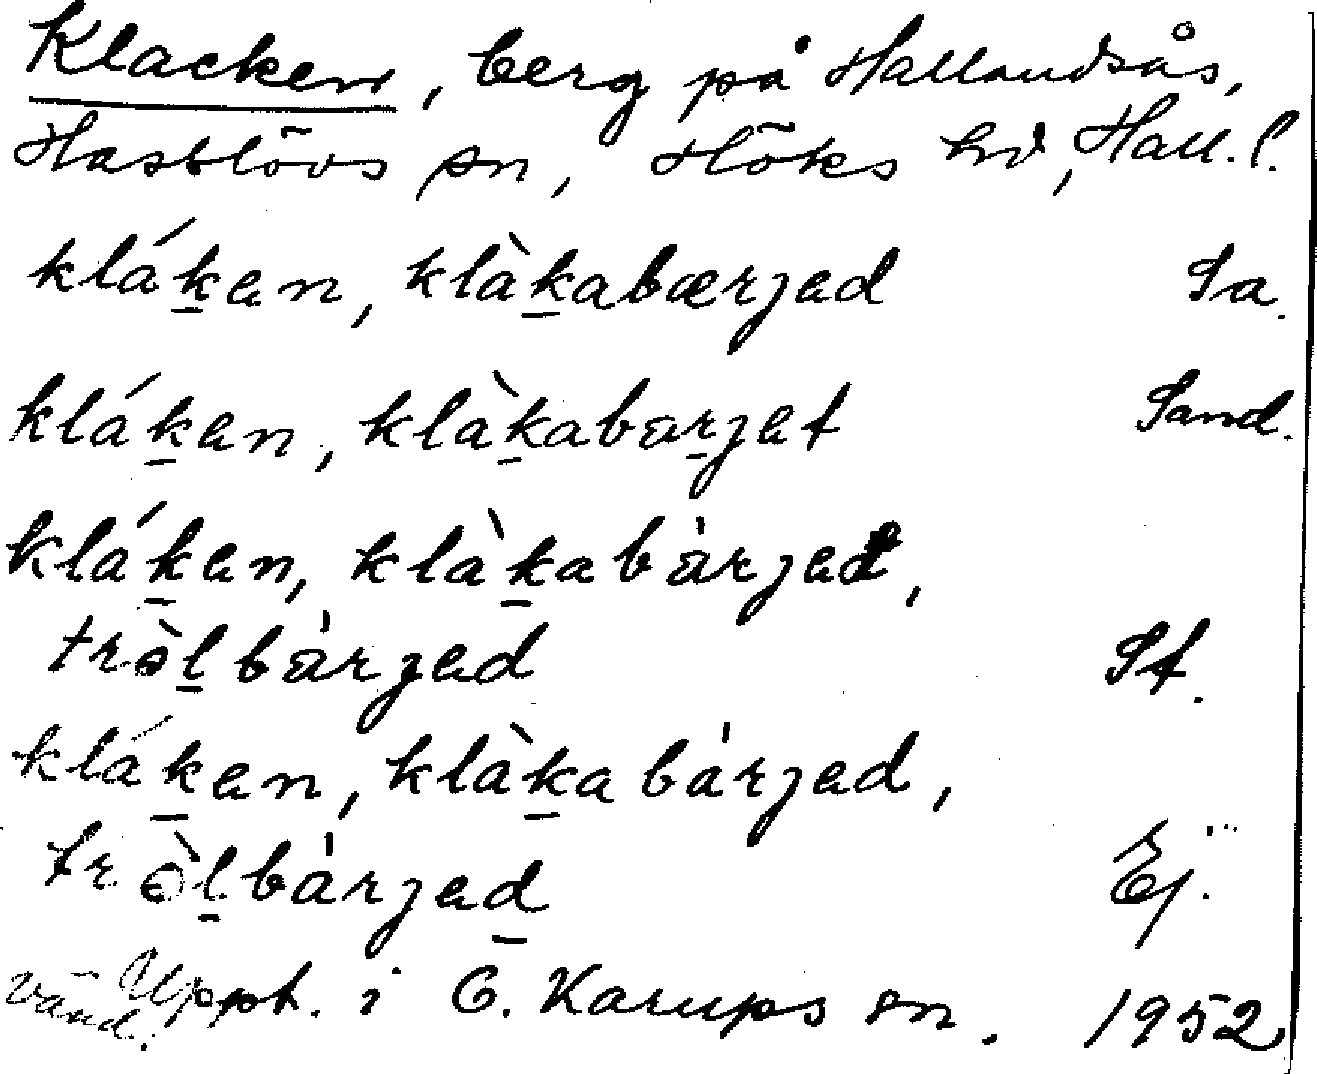 Klacken, berg på Hallandsås,
Hasslövs sn, Höks hd, Hall. l.
klák̲en, klàk̲abærjed Sa.
klák̲en, klàk̲abar̲jet Sand.
klák̲en, klàk̲abȧrjet,
trɵ̀l̲bȧrjed St.
klák̲en, klàk̲abȧrjed,
trɵ̀l̲bȧrjed̲ Ej.
Uppt. i Ö. Karups sn. 1952
vänd.